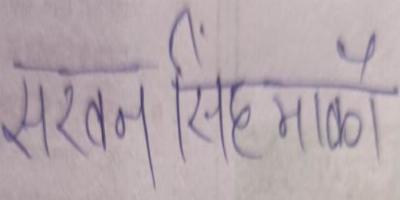 सरवन सिंह मार्को